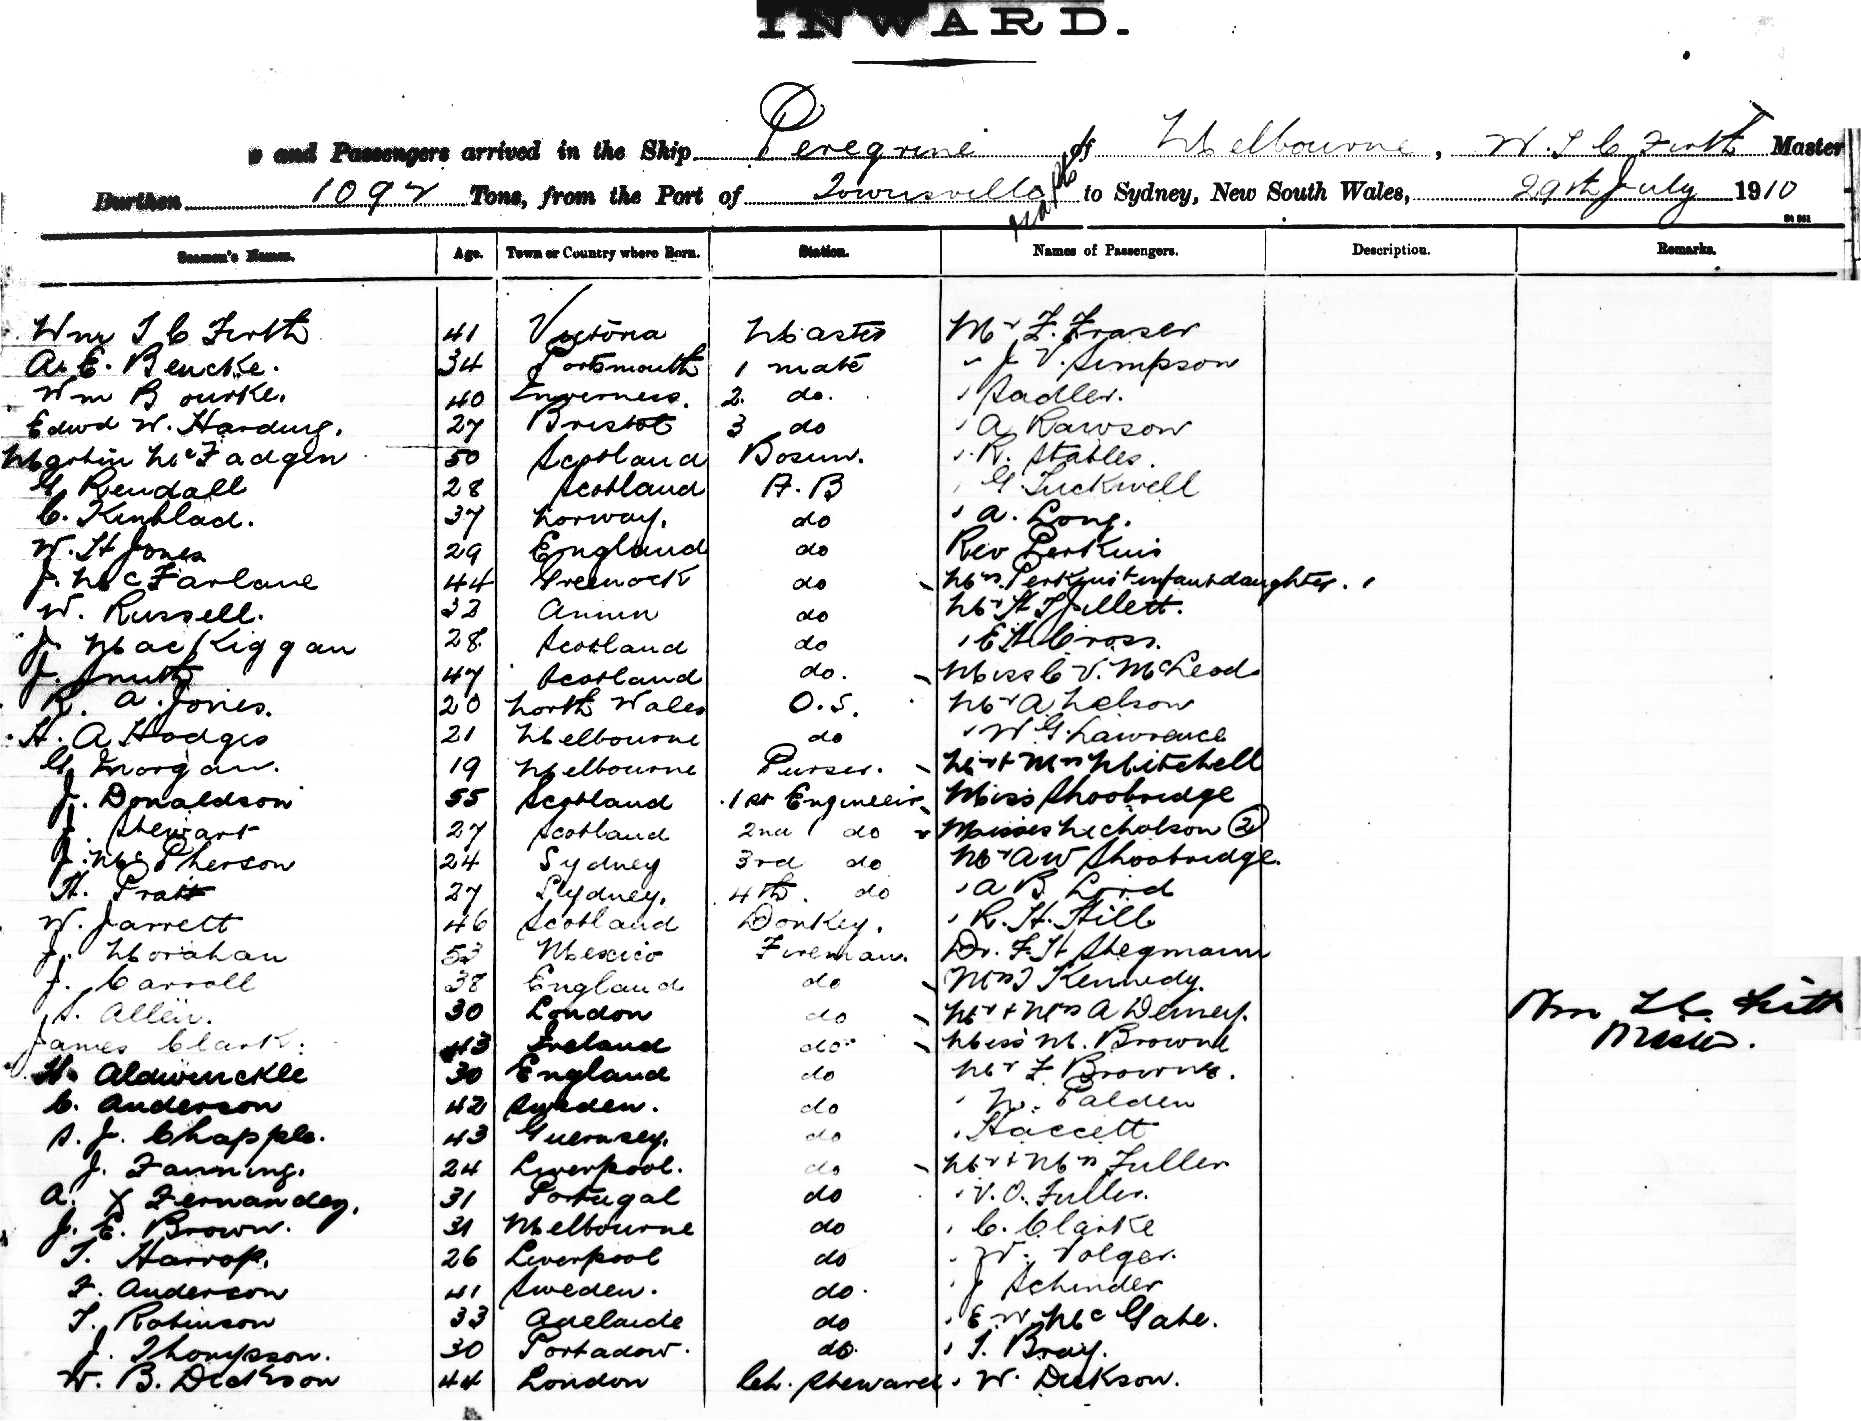 INWARD.
and Passengers arrived in the Ship Peregrine of Melbourne, W. T C Firth Master
Burthen 1092 Tons, from the Port of Townsville to Sydney, New South Wales, 29th July 1910
Seamen's Names. Age. Town or Country where Born. Station. Names of Passengers. Description. Remarks.
Wm T C Firth 41 Victoria Master Mr F. Fraser
A. E. Beucke. 34 Portsmouth 1 mate " J V. Simpson
Wm Bourke. 40 Inverness. 2. do. " Sadler.
Edwd W. Harding. 27 Bristol 3 do " A Rawson
Martin McFadgen 50 Scotland Bosun. " R. Stables.
G Rendall 28 Scotland A. B " G Tuckwell
C. Kinblad. 37 Norway. do " A. Long.
W. H Jones 29 England do Rev Perkins
J. McFarlane 44 Greenock do Mrs. Perkins & infant daughter.
W. Russell. 32 Annan do Mr H T Jillett.
J. MacKiggan 28 Scotland do " E H Cross.
J. Smith 47 Scotland do. Miss C V. McLeod
R. A. Jones. 20 North Wales O.S. Mr A Nelson
H. A Hodges 21 Melbourne do " W G Lawrence
G Morgan. 19 Melbourne Purser. Mr & Mrs Mitchell
J. Donaldson 55 Scotland 1st Engineer Miss Shoobridge
J. Stewart 27 Scotland 2nd do Misses Nicholson (2)
J. McPherson 24 Sydney 3rd do Mr A W Shoobridge.
H. Pratt 27 Sydney. 4th. do " A B Lord
W. Jarrett 46 Scotland Donkey. " R. H. Hill
J. Horahan 53 Mexico Fireman. Dr. F. H Stegmann
J. Carroll 38 England do Mrs J Kennedy.
S. Allen. 30 London do Mr & Mrs A Demery.
James Clark. 43 Ireland do Miss M. Browne
H. Aldwinckle 30 England do Mr F Browne.
C. Anderson 42 Sweden. do " N. Palden
S. J. Chapple. 43 Guernsey. do " Haccett
J. Fanning. 24 Liverpool. do Mr & Mrs Fuller
A. X Fernandez. 31 Portugal do " V. O. Fuller.
J. E. Brown. 31 Melbourne do " C. Clarke
T. Harrop. 26 Liverpool do " W. Volger.
F. Anderson 41 Sweden. do. " J Schinder
T. Robinson 33 Adelaide do " E W McGahe.
J. Thompson. 30 Portadow. do. " T. Bray.
W. B. Dickson 44 London Ch. Steward " W. Dickson.
Wm T C Firth
Master.